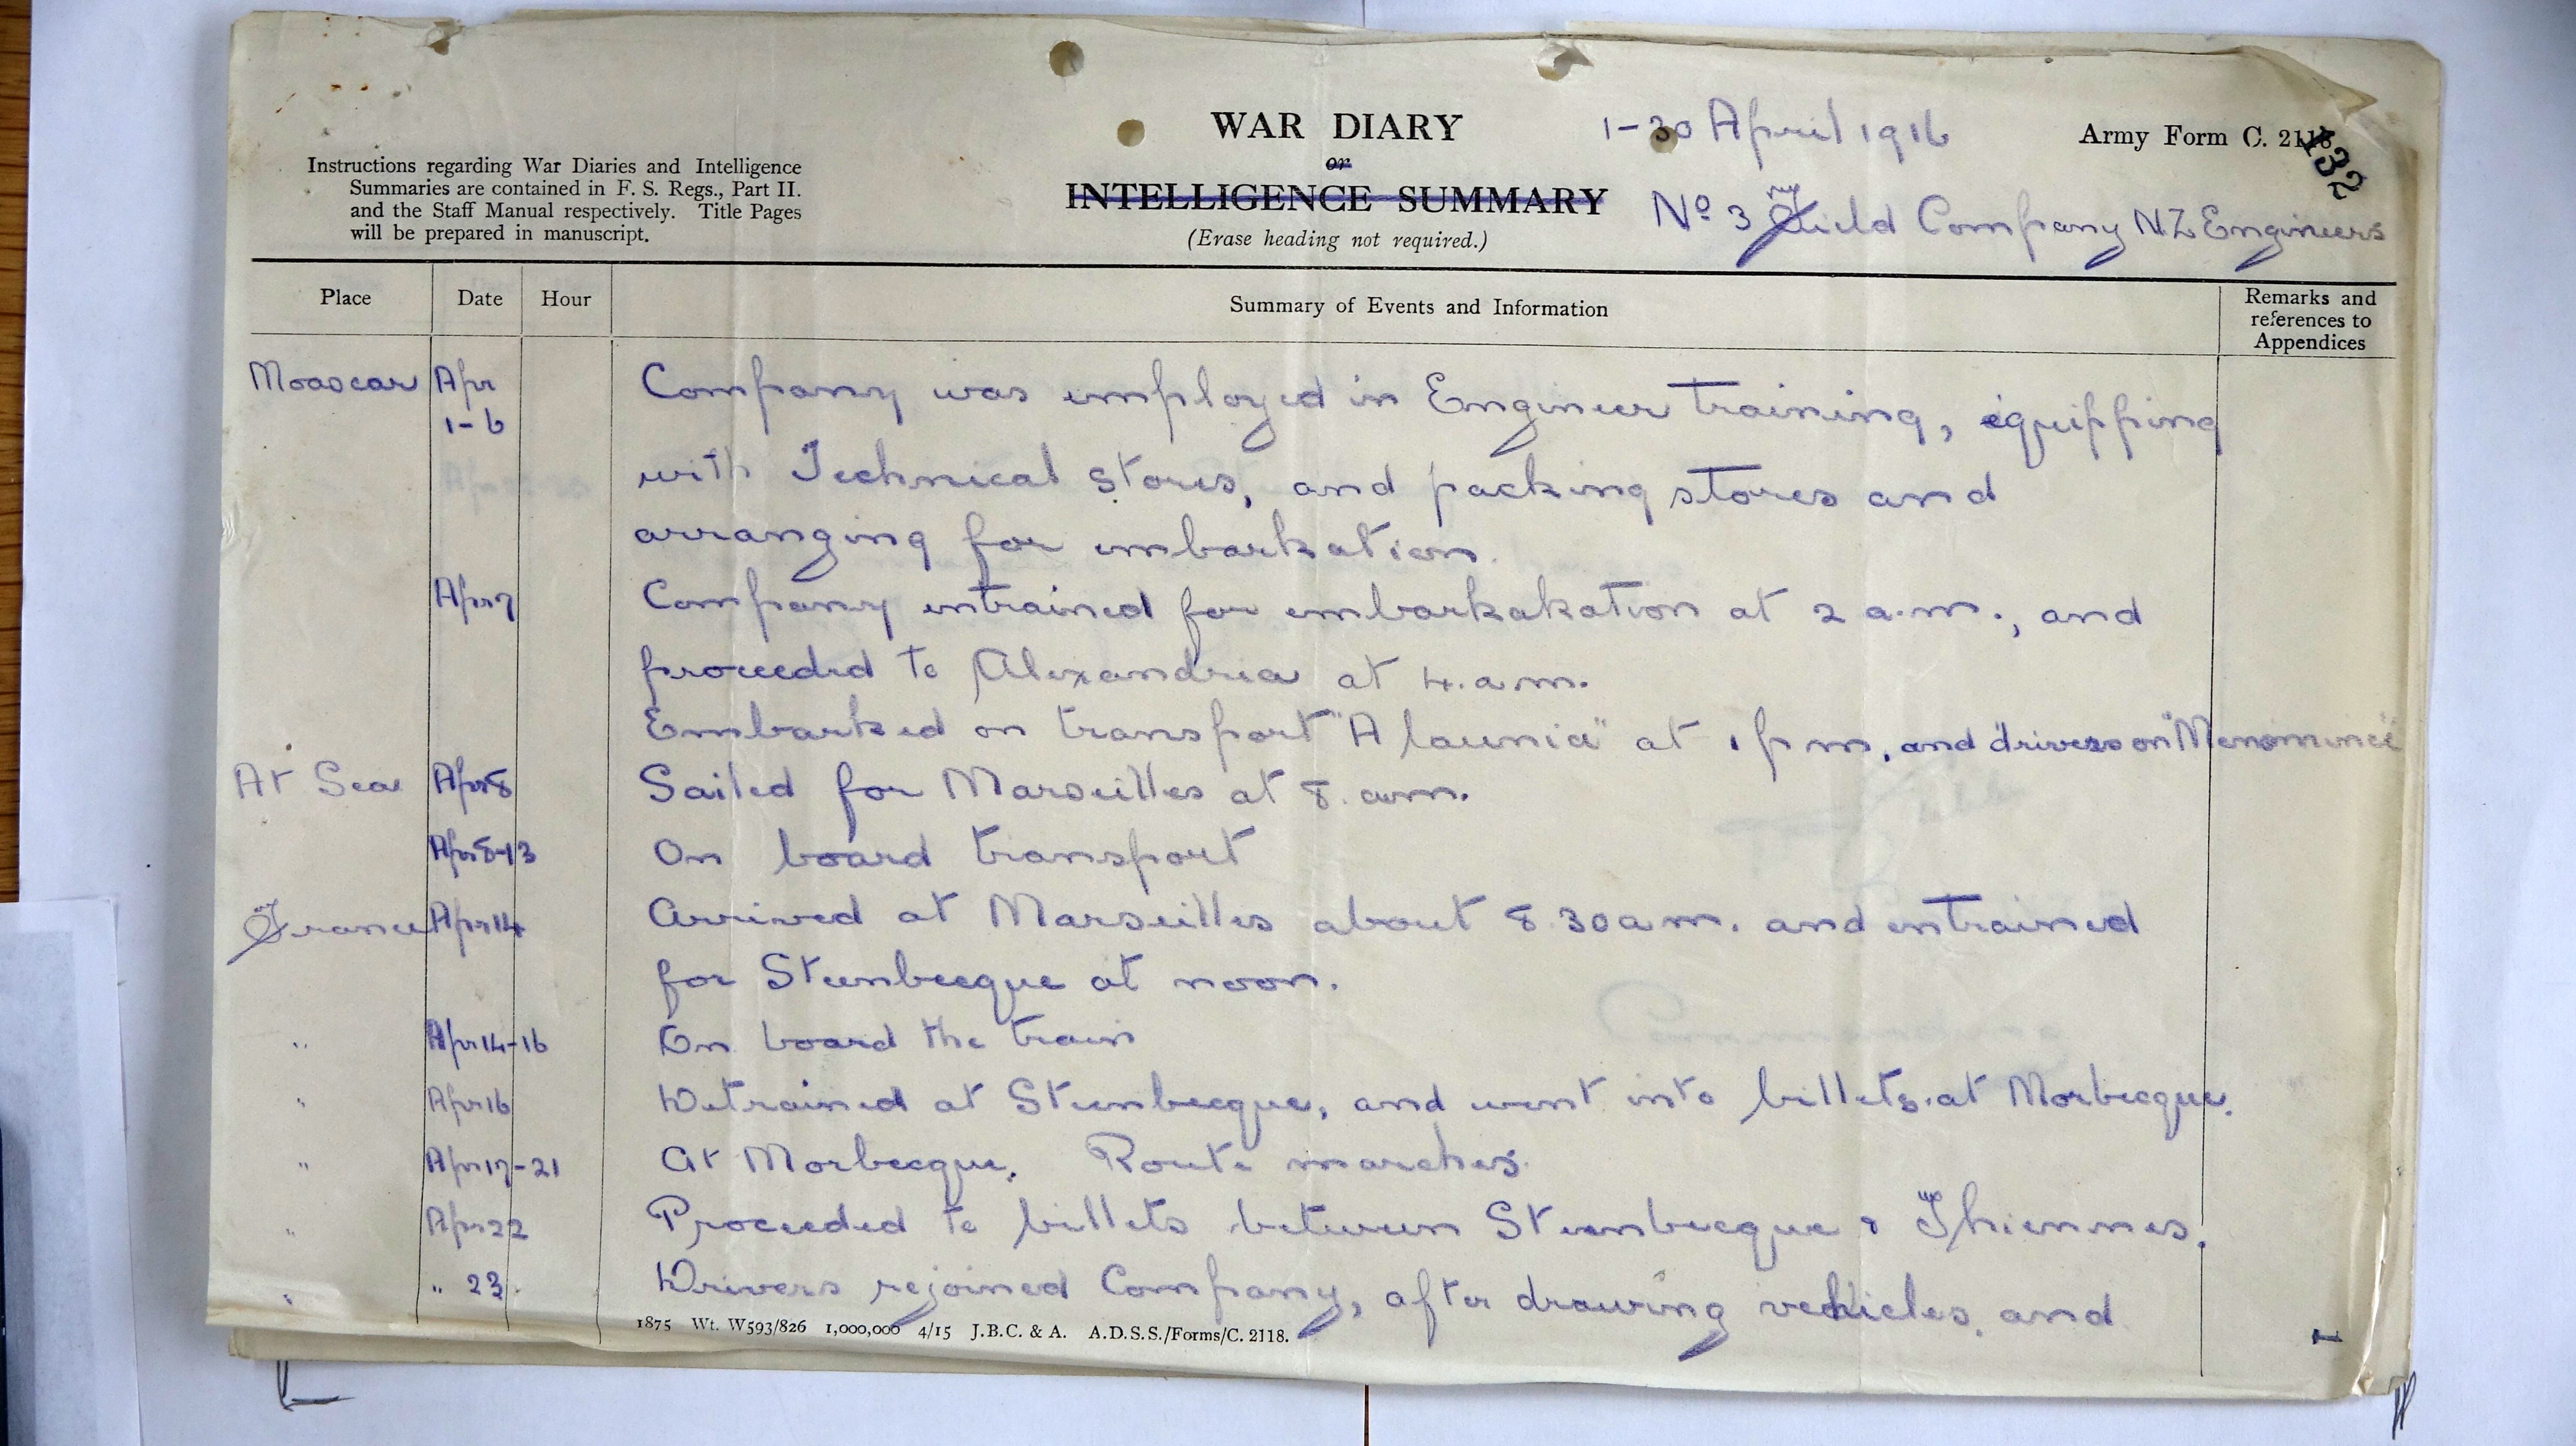 WAR DIARY
or
INTELLIGENCE SUMMARY
(Erase heading not required.)
1-30 April 1916
Army Form C. 2118
132
No 3 Field Company NZ Engineers
Instructions regarding War Diaries and Intelligence
Summaries are contained in F. S. Regs., Part II.
and the Staff Manual respectively. Title Pages
will be prepared in manuscript.
Place Date Hour Summary of Events and Information Remarks and
references to
Appendices
Moascar Apr Company was employed in Engineer training, equipping
1-6
with Technical Stores, and packing stores and
arranging for embarkation.
Apr 7 Company entrained for embarkakation at 2 a.m., and
proceeded to Alexandria at 4. a.m.
Embarked on transport "Alaunia" at 1 p m, and drivers on "Menominee"
At Sea Apr 8 Sailed for Marseilles at 8. a.m.
Apr 8-13 On board transport
France Apr 14 Arrived at Marseilles about 8.30 a.m. and entrained
for Steenbecque at noon.
" Apr 14-16 On board the train
" Apr 16 Detrained at Steenbecque, and went into billets at Morbecque.
" Apr 17-21 At Morbecque. Route marches.
" Apr 22 Proceeded to billets between Steenbecque & Thiennes.
" " 23. Drivers rejoined Company, after drawing vehicles, and
1875 Wt. W593/826 1,000,000 4/15 J.B.C. & A. A.D.S.S./Forms/C. 2118.
1